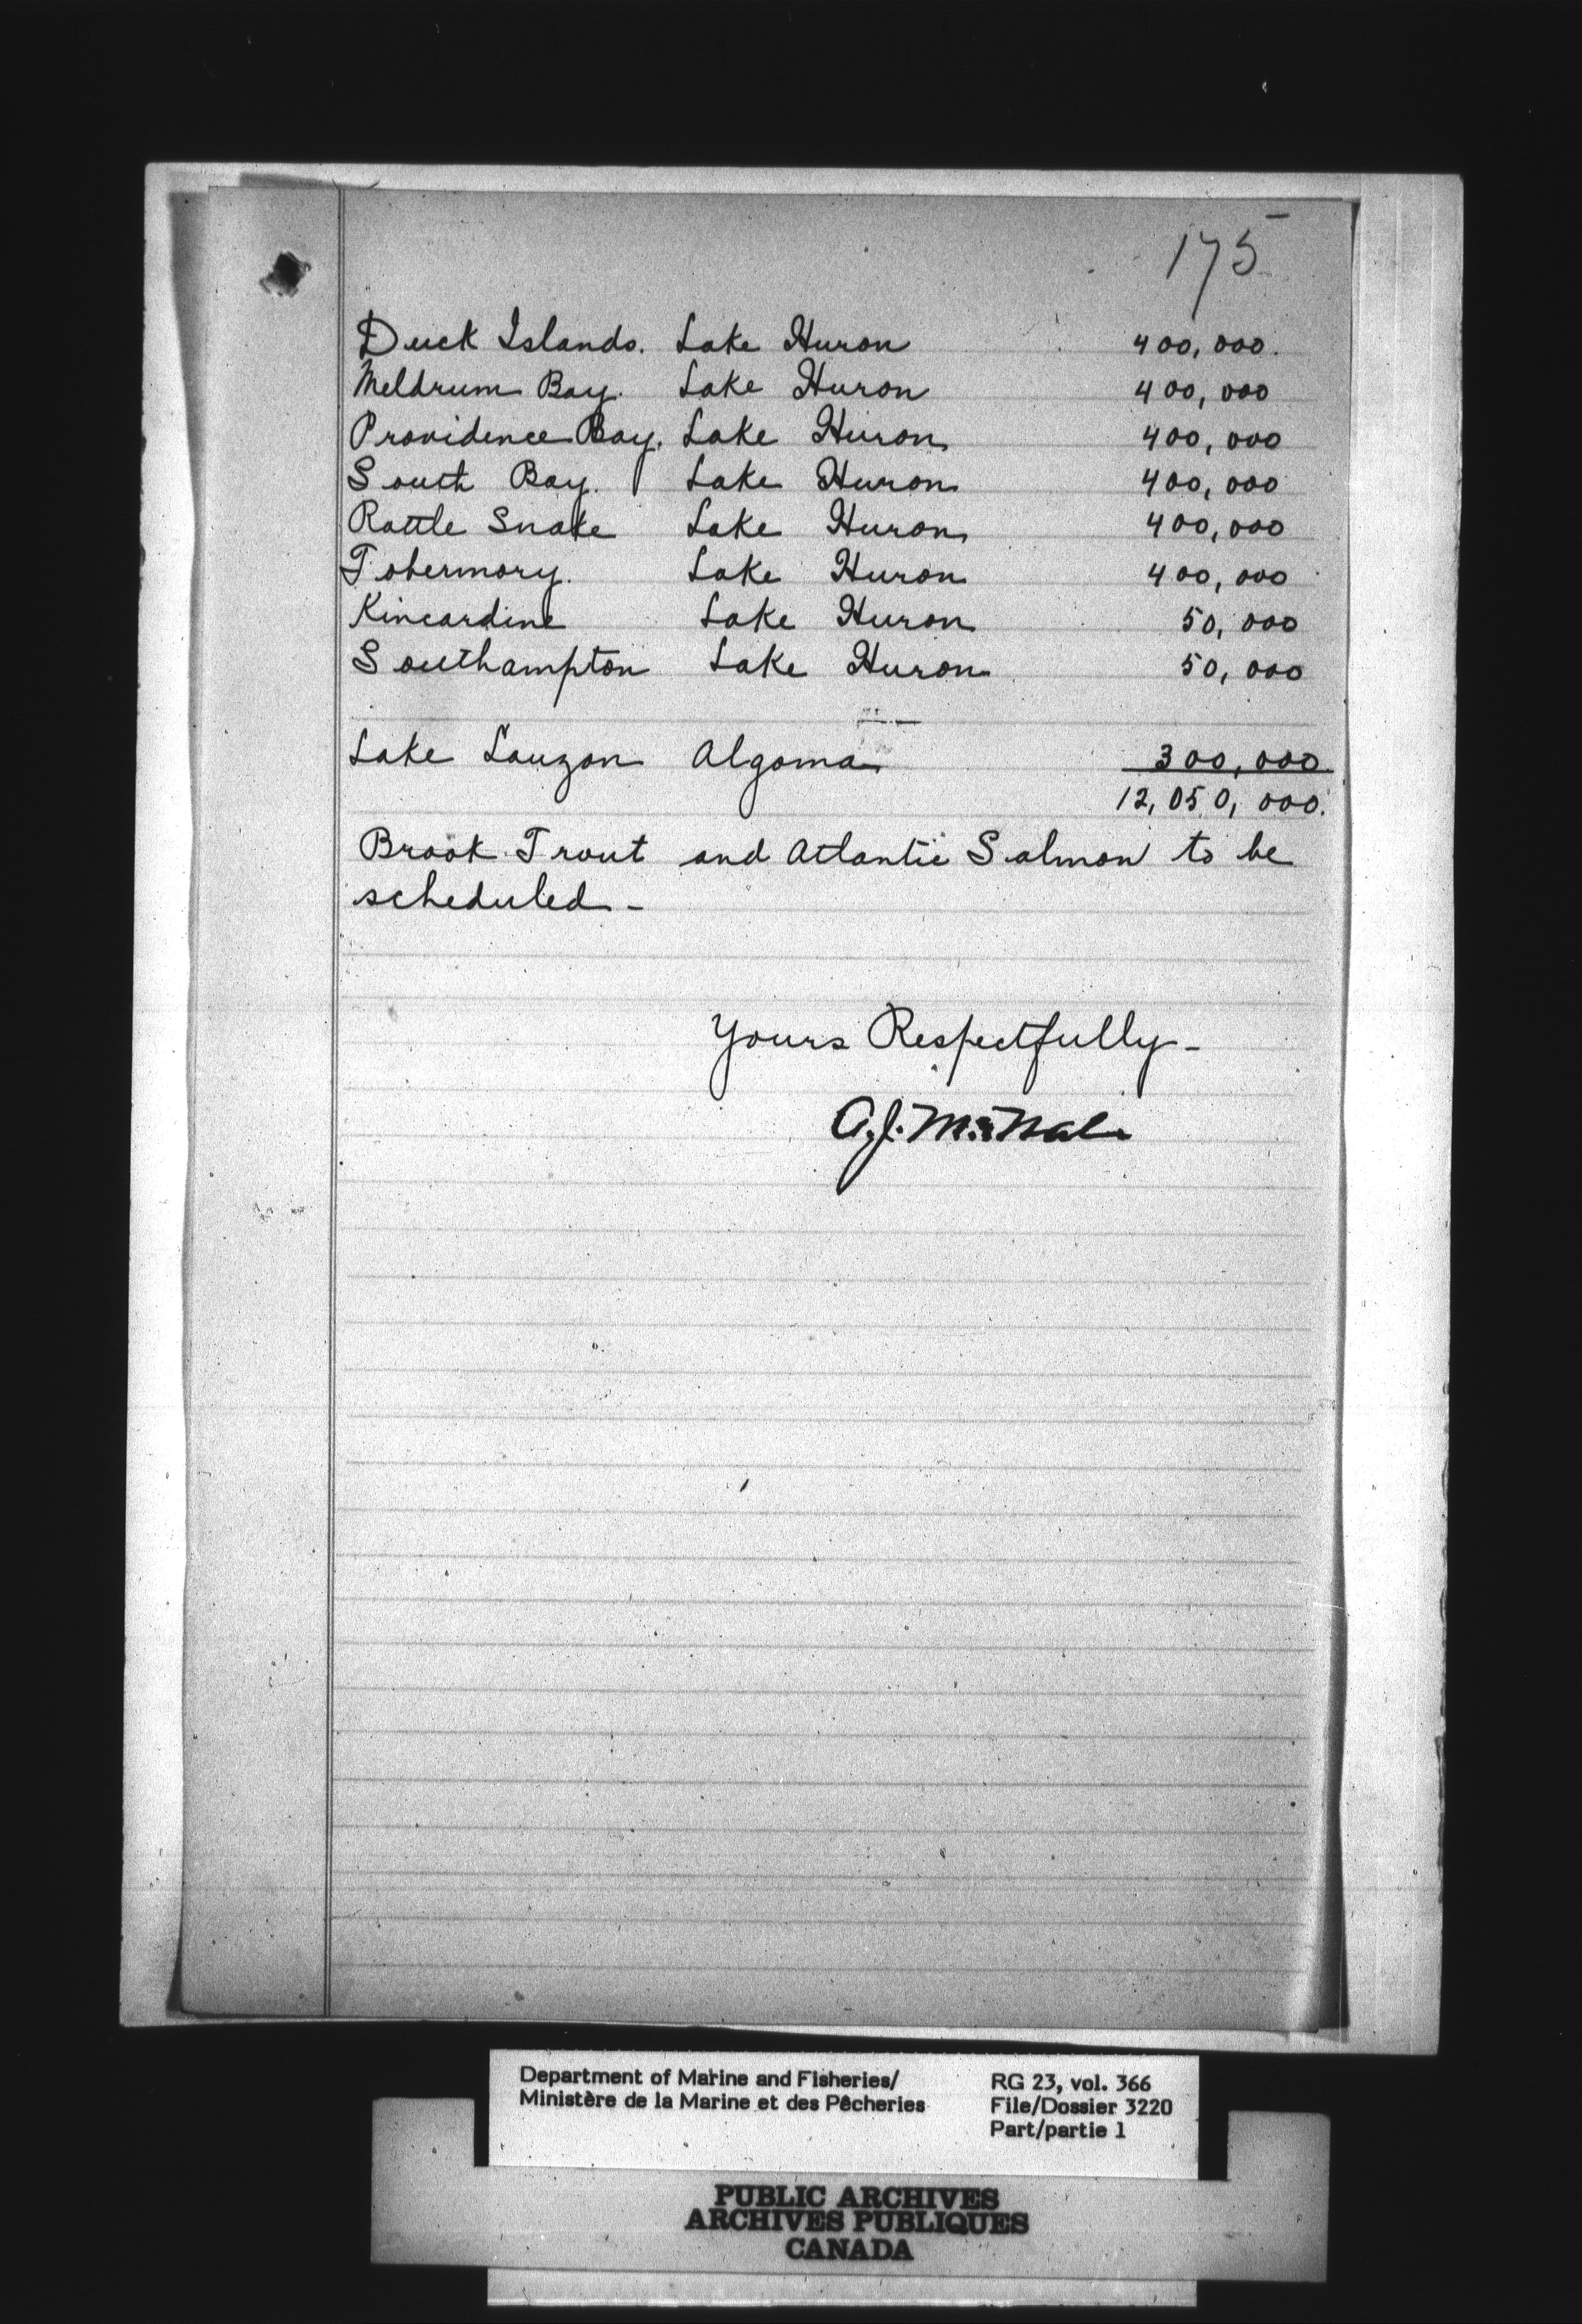 175
Duck Islands. Lake Huron 400,000.
Meldrum Bay. Lake Huron 400,000
Providence Bay. Lake Huron 400,000
South Bay. Lake Huron 400,000
Rattle Snake Lake Huron 400,000
Tobermory. Lake Huron 400,000
Kincardine Lake Huron 50,000
Southampton Lake Huron 50,000
Lake Lauzon Algoma 300,000.
12,050,000.
Brook Trout and Atlantic Salmon to be
scheduled -
Yours Respectfully -
A.J.
Department of Marine and Fisheries/ RG 23, vol. 366
Ministère de la Marine et des Pêcheries File/Dossier 3220
Part/partie 1
PUBLIC ARCHIVES
ARCHIVES PUBLIQUES
CANADA